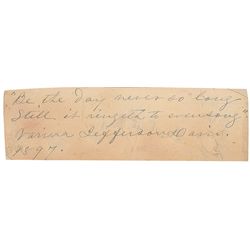 "Be the day never so long
Still it ringeth to evensong"
Varina Jefferson Davis.
1897.